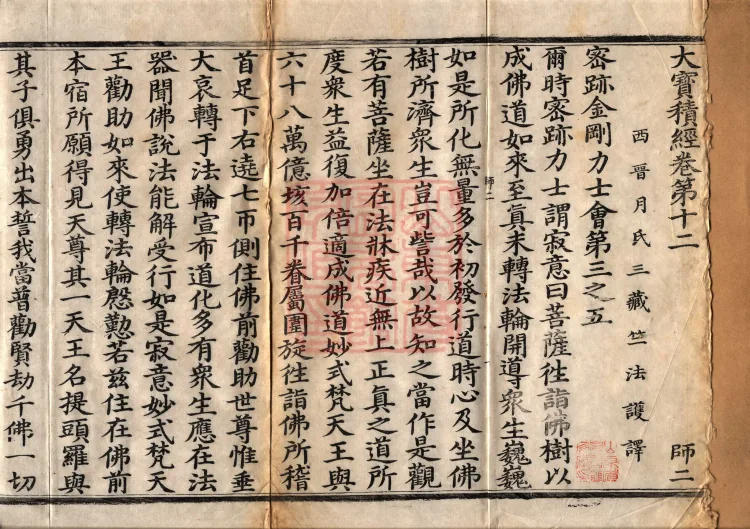 大寶積經卷第十二 師二
西晋月氏三藏竺法護譯
密跡金剛力士會第三之五
爾時密跡力士謂寂意曰菩薩徃詣佛樹以
成佛道如來至真未轉法輪開導衆生巍巍
師二
如是所化無量多於初發行道時心及坐佛
樹所濟衆生豈可訾哉以故知之當作是觀
若有菩薩坐在法牀疾近無上正真之道所
度衆生益復加倍適成佛道妙式梵天王與
六十八萬億垓百千眷屬圍旋徃詣佛所稽
首足下右遶七帀側住佛前勸助世尊惟垂
大哀轉于法輪宣布道化多有衆生應在法
器聞佛說法能解受行如是寂意妙式梵天
王勸助如來使轉法輪慇懃若兹住在佛前
本宿所願得見天尊其一天王名提頭羅與
其子俱勇出本誓我當普勸賢劫千佛一切